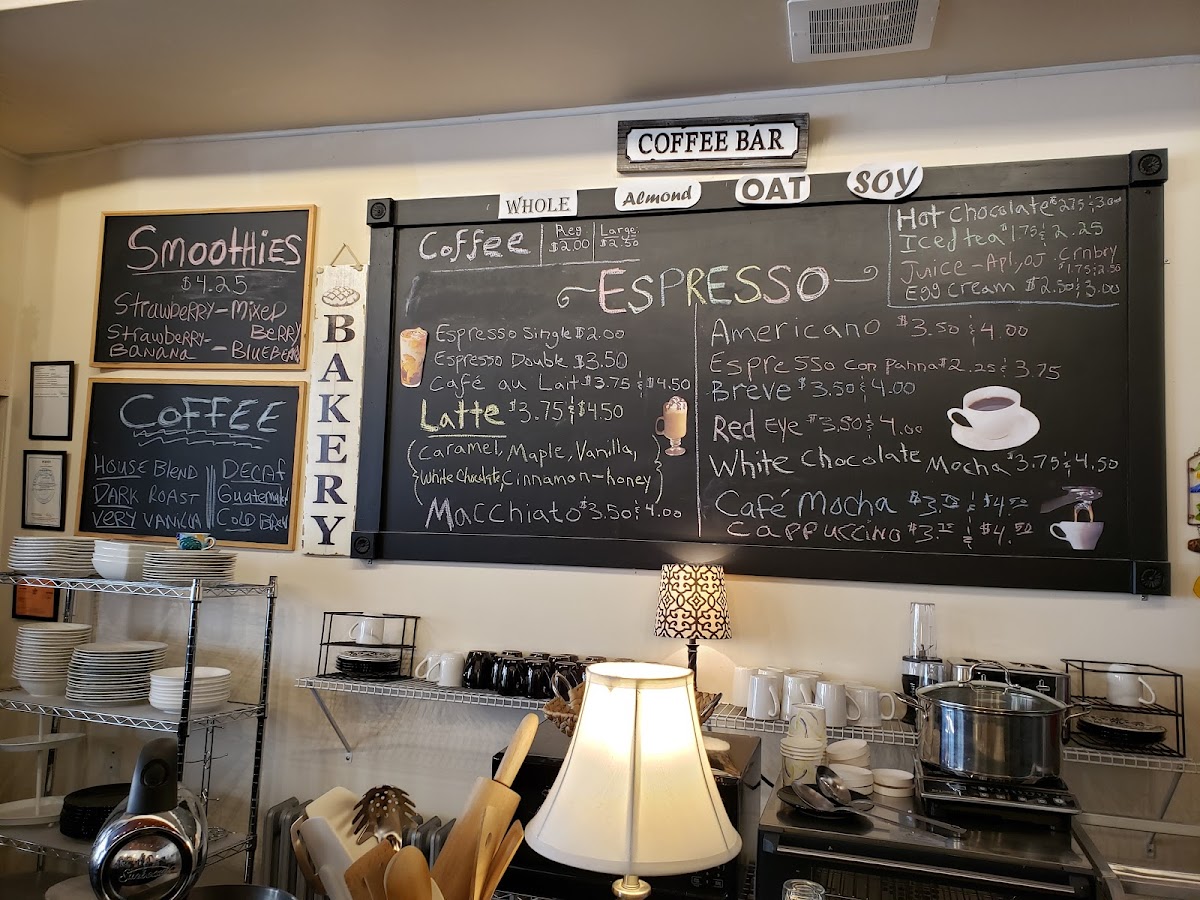 COFFEE BAR
WHOLE
Almond
OAT
SOY
SMOOTHIES
$4.25
Strawberry - Mixed
BERRY
Strawberry-
BANANA - BLUEBERRY
COFFEE
HOUSE BLEND
DARK ROAST
VERY VANILLA
DECAF
Guatemalan
COLD BREW
BAKERY
Coffee
Reg
$2.00
Large
$2.50
Hot Chocolate $2.75 & 3.00
Iced tea $1.75 & 2.25
Juice - Apl, OJ, Crnbry
$1.75 & 2.50
Egg Cream $2.50 & 3.00
ESPRESSO
Espresso Single $2.00
Espresso Double $3.50
Café au Lait $3.75 & $4.50
Latte $3.75 & $4.50
(Caramel, Maple, Vanilla,
White Chocolate, Cinnamon-honey)
Macchiato $3.50 & 4.00
Americano $3.50 & 4.00
Espresso Con Panna $2.25 & 3.75
Breve $3.50 & 4.00
Red Eye $3.50 & 4.00
White Chocolate Mocha $3.75 & 4.50
Café Mocha $3.75 & $4.50
Cappuccino $3.75 & $4.50